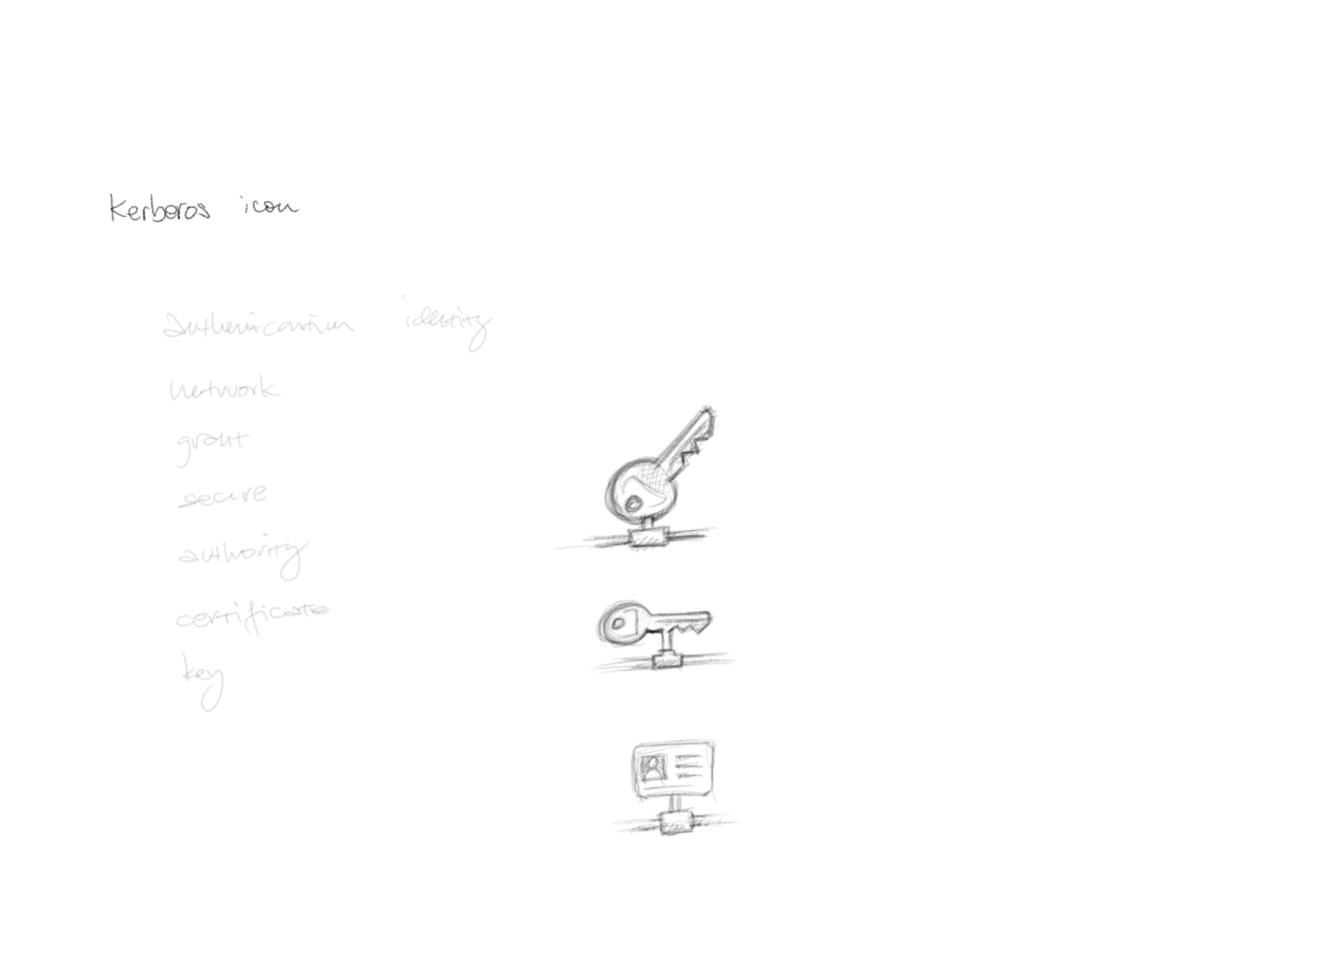 Kerberos icon
authenication identity
network
grant
secure
authority
certificate
key